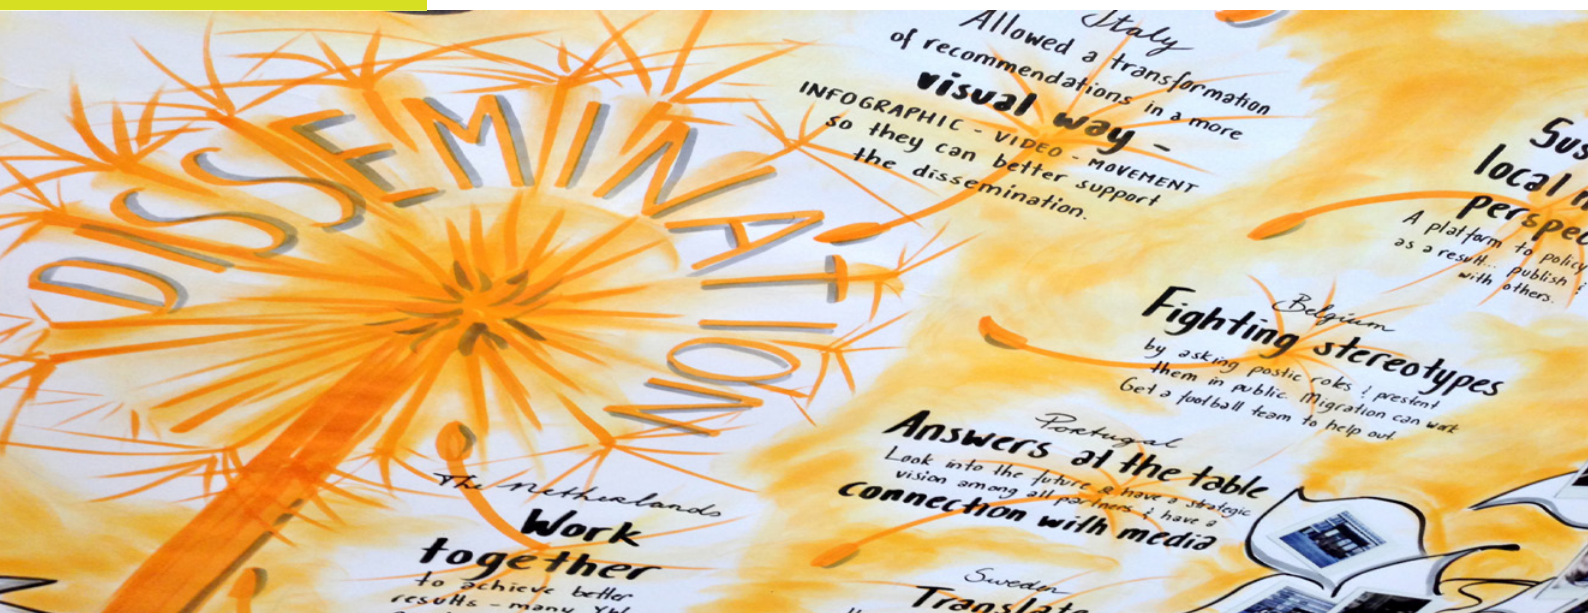 DISSEMINATION
Italy
Allowed a transformation
of recommendations in a more
visual way -
INFOGRAPHIC - VIDEO - MOVEMENT
so they can better support
the dissemination.
local
A platform to policy
as a result... publish &
with others.
Belgium
Fighting stereotypes
by asking postic roks & present
them in public. Migration can work
Get a football team to help out
Portugal
Answers at the table
Look into the future & have a strategic
vision among all partners & have a
connection with media
The Netherlands
Work
together
to achieve better
results - many
Sweden
Translate